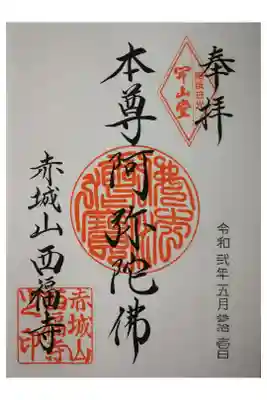 奉拝
本尊阿弥陀佛
赤城山西福寺
令和弐年五月参拾壱日
開山堂
赤城山
西福寺
之印